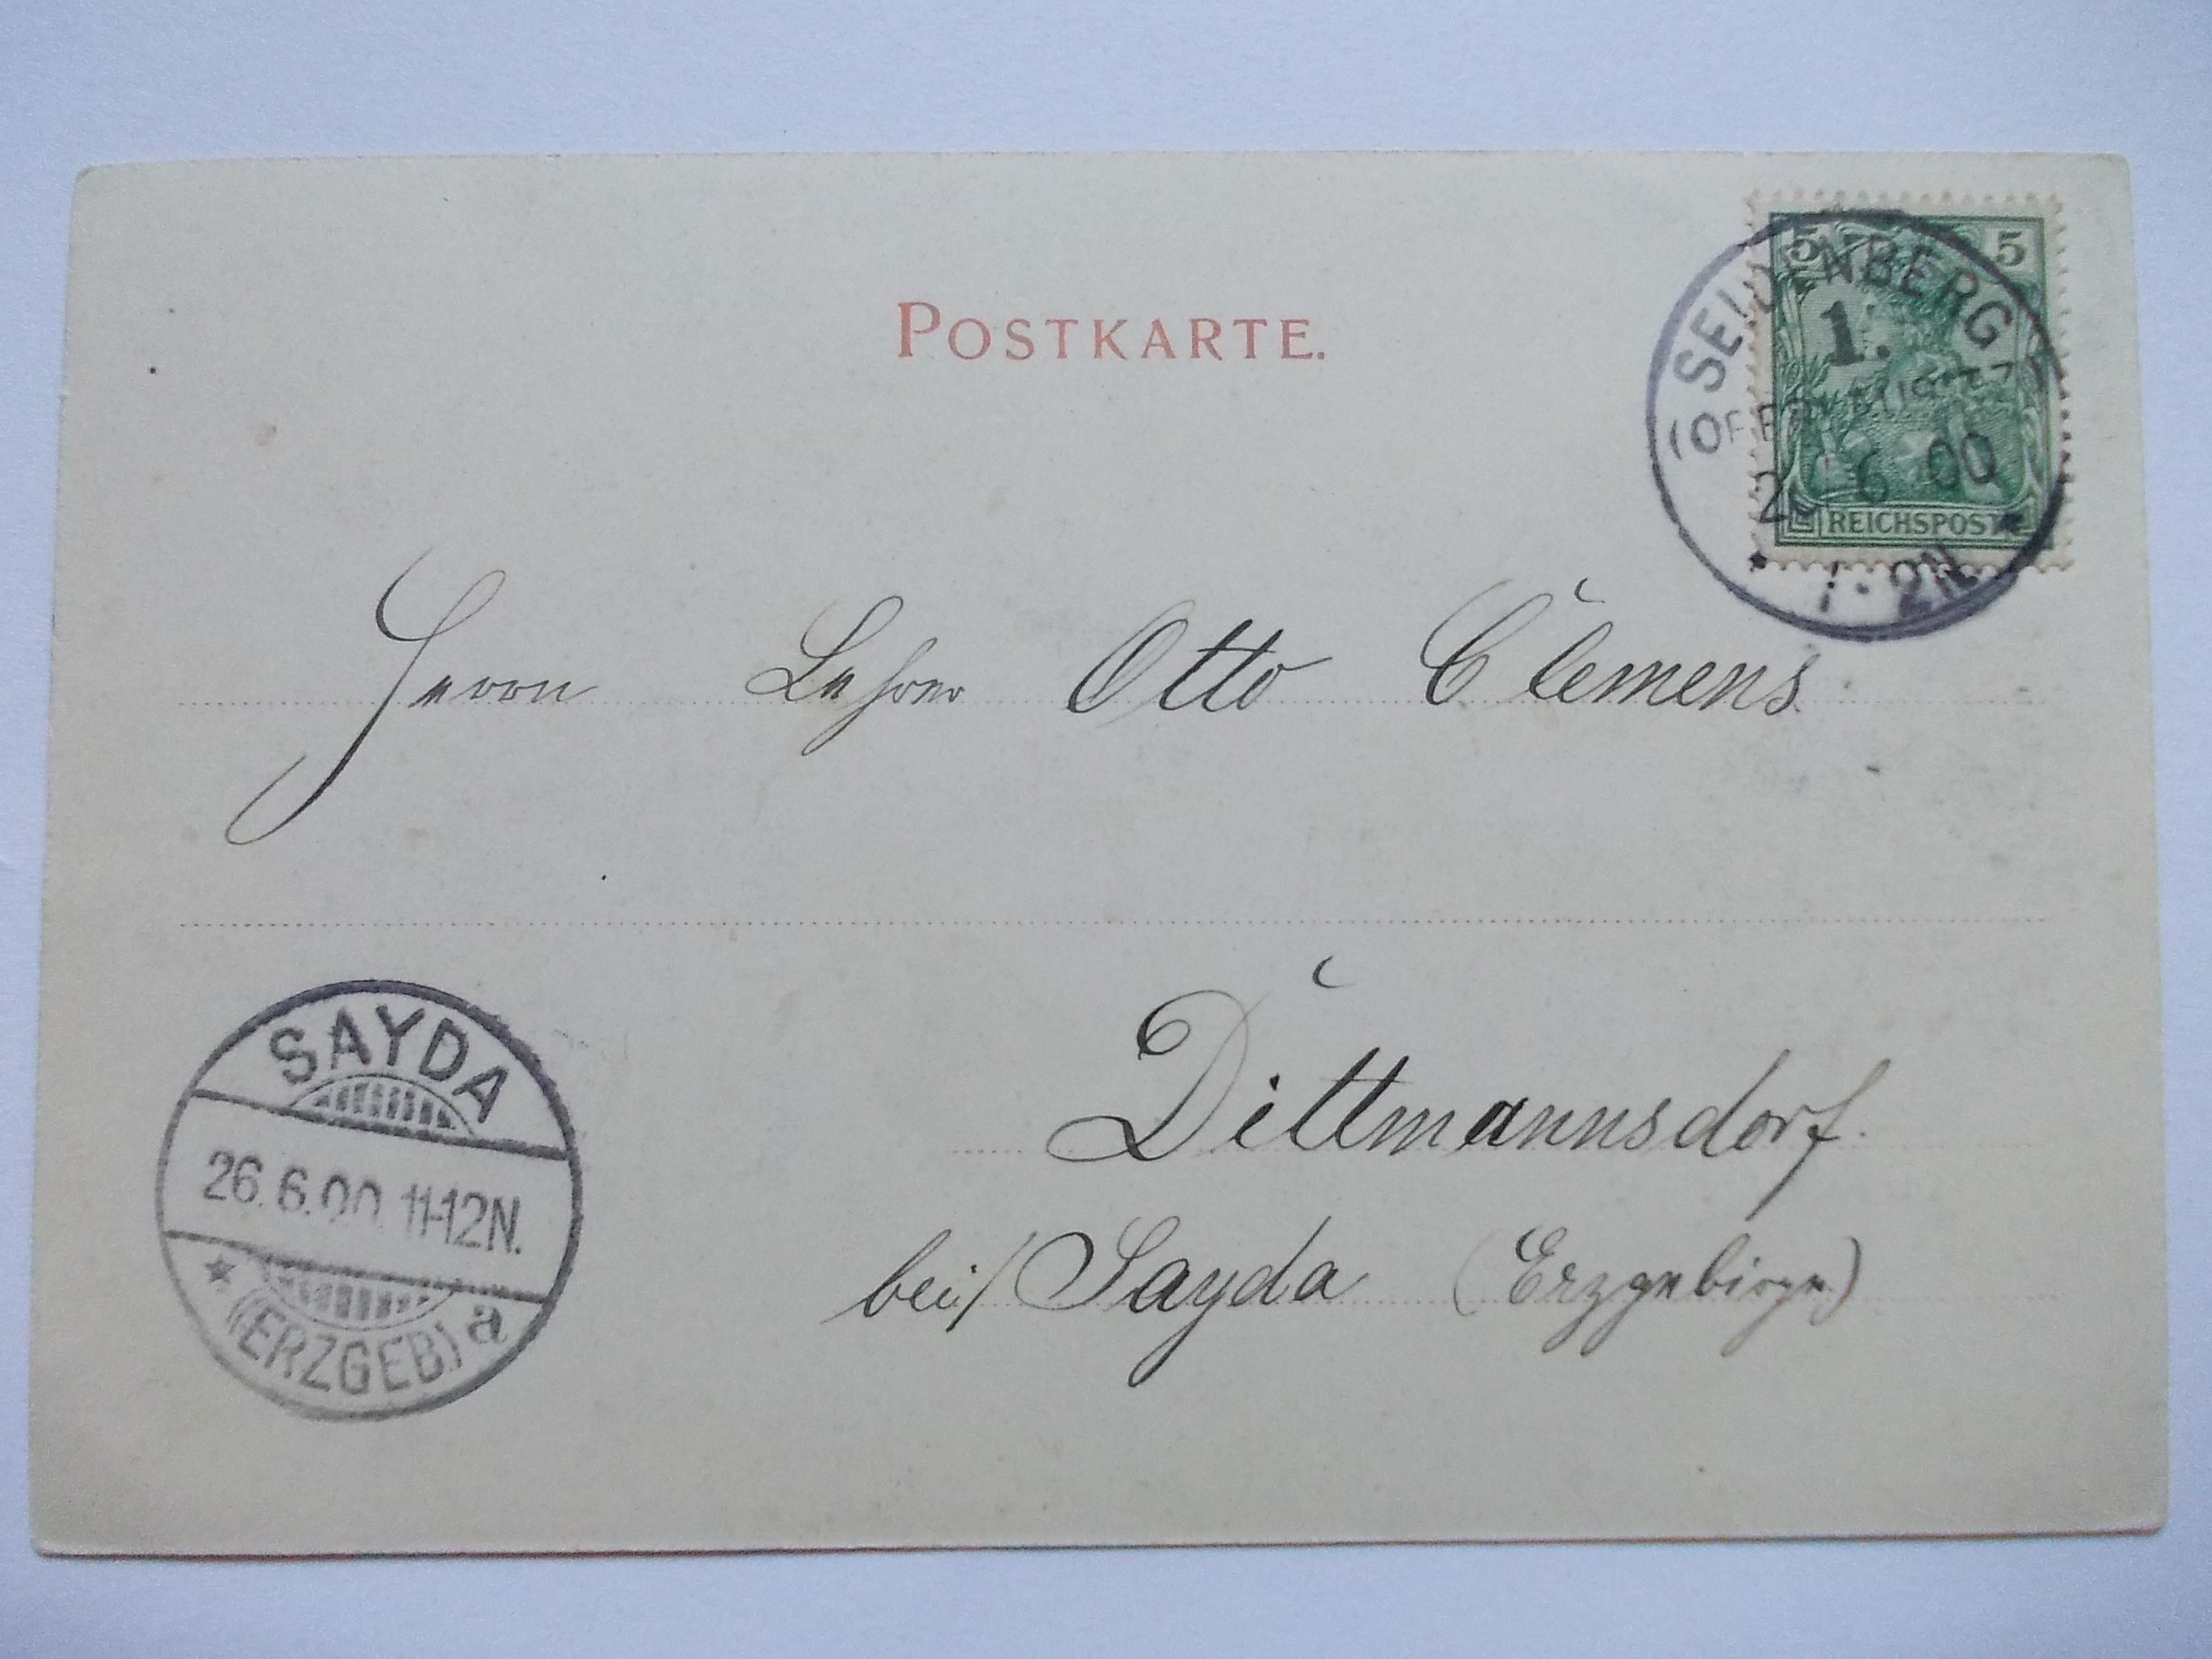 POSTKARTE.
5 5
REICHSPOST
SEIDENBERG
1.
6 00
2N
Herrn Lehrer Otto Clemens.
Dittmannsdorf.
bei/Sayda (Erzgebirge)
SAYDA
26.6.00. 11-12N.
(ERZGEB) a